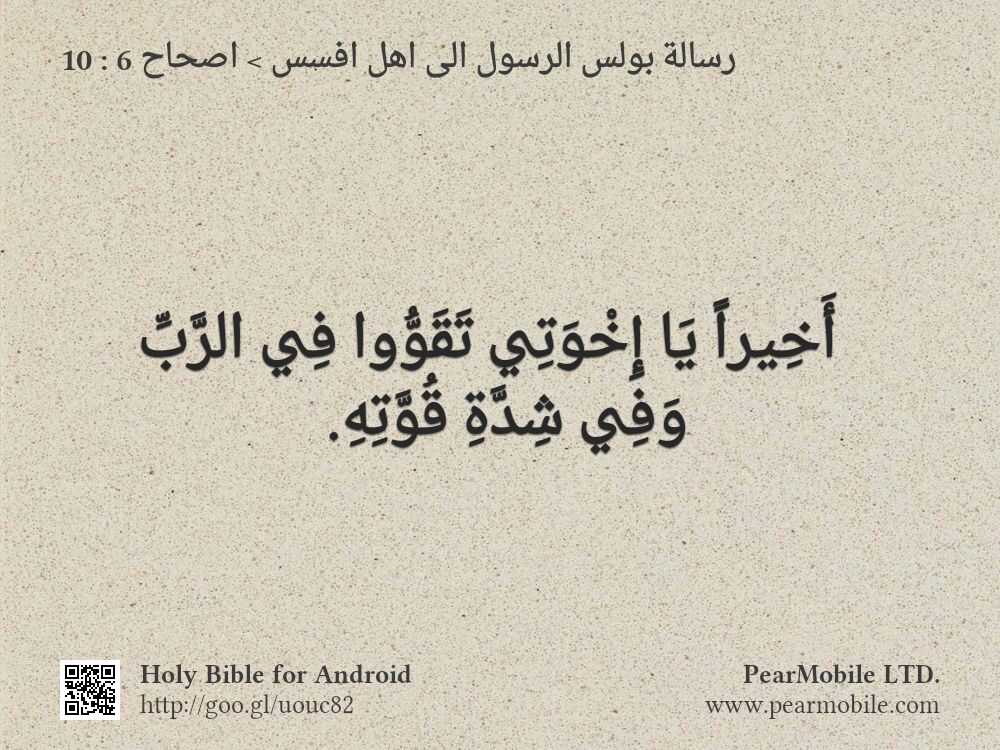 رسالة بولس الرسول الى اهل افسس > اصحاح 6 : 10
أَخِيراً يَا إِخْوَتِي تَقَوُّوا فِي الرَّبِّ
وَفِي شِدَّةِ قُوَّتِهِ.
Holy Bible for Android
http://goo.gl/uouc82
PearMobile LTD.
www.pearmobile.com